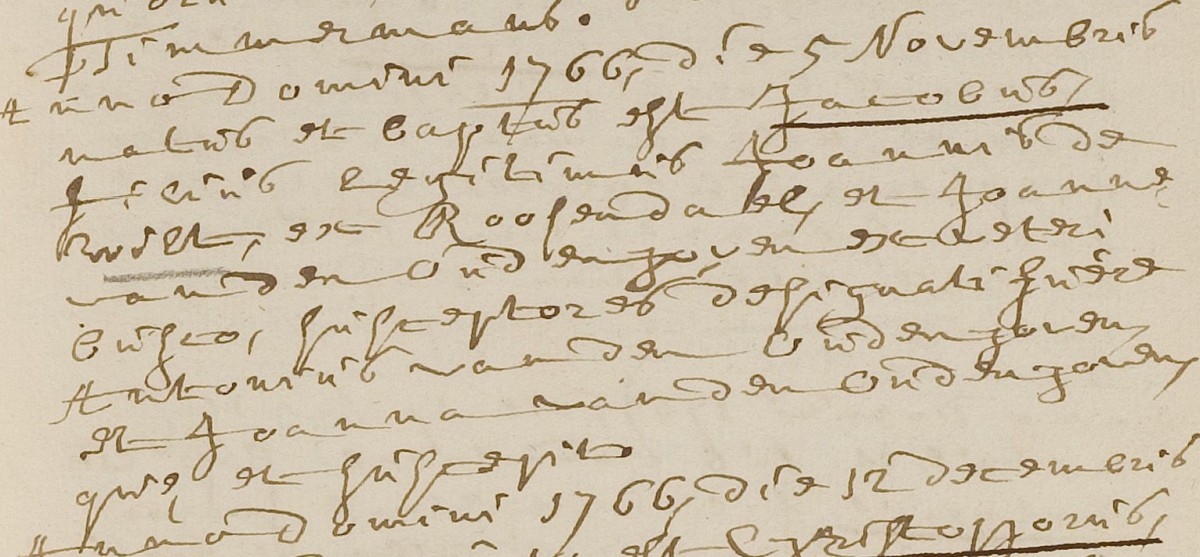 Timmermans.
Anno Domini 1766, die 5 Novembris
natus et baptus est Jacobus,
filius legitimus Joannis de
wilt, ex Roosendael, et Joannę
vanden Oudenhoven ex veteri
busco, susceptores designati fuêre
Antonius vanden Oudenhoven
et Joanna vanden Oudenhoven,
quę et suscepit
Anno Domini 1766, die 12 decembris
est Christophorus,